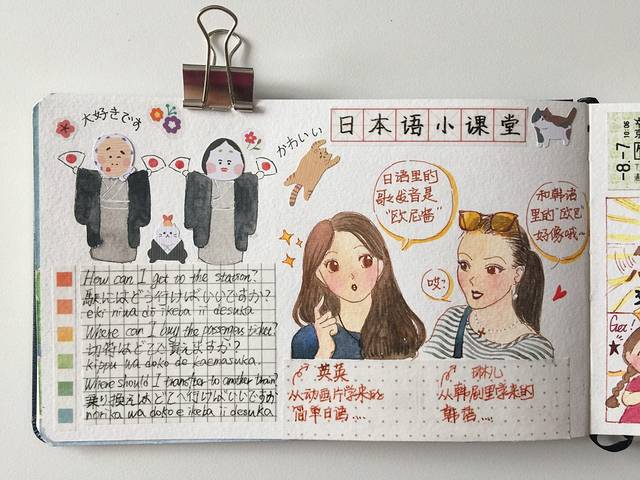 大好きです
かわいい
日本语小课堂
日语里的
哥哥发音是
"欧尼酱"
和韩语
里的"欧巴"
好像哦~
哎?
How can I got no the station?
駅にはどう行けばいいですか?
eki niwa do ikeba ii desuka
Where can I buy the passenger ticket?
切符はどこで買えますか?
kippu wa doko de kaemasuka.
Where should I transfer to another train?
乗り換えはどこへ行けばいいですか
norika wa doko e ikeba ii desuka
英英
从动画片学来的
简单日语....
琳儿
从韩剧里学来的
韩语....
-8.-7
Gez!